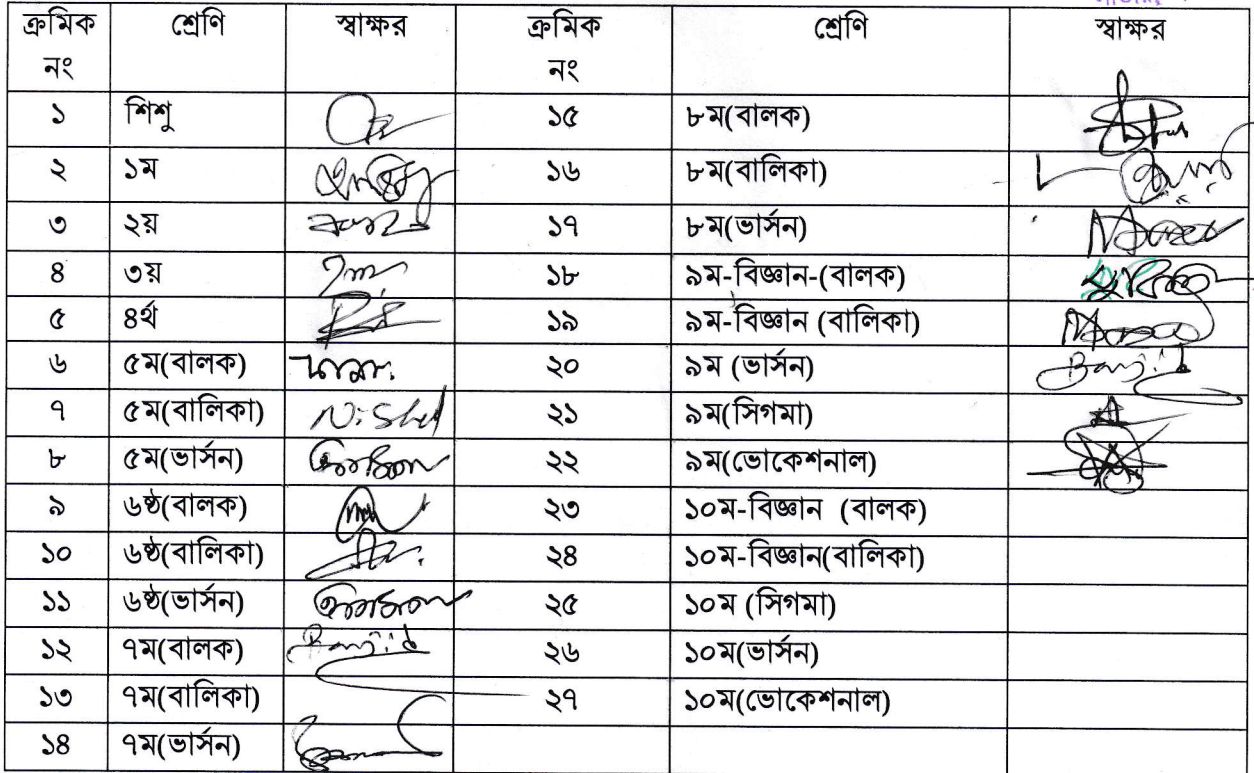 ক্রমিক নং শ্রেণি স্বাক্ষর ক্রমিক নং শ্রেণি স্বাক্ষর
১ শিশু ১৫ ৮ম(বালক)
২ ১ম ১৬ ৮ম(বালিকা)
৩ ২য় ১৭ ৮ম(ভার্সন)
৪ ৩য় ১৮ ৯ম-বিজ্ঞান-(বালক)
৫ ৪র্থ ১৯ ৯ম-বিজ্ঞান (বালিকা)
৬ ৫ম(বালক) ২০ ৯ম (ভার্সন)
৭ ৫ম(বালিকা) ২১ ৯ম(সিগমা)
৮ ৫ম(ভার্সন) ২২ ৯ম(ভোকেশনাল)
৯ ৬ষ্ঠ(বালক) ২৩ ১০ম-বিজ্ঞান (বালক)
১০ ৬ষ্ঠ(বালিকা) ২৪ ১০ম-বিজ্ঞান(বালিকা)
১১ ৬ষ্ঠ(ভার্সন) ২৫ ১০ম (সিগমা)
১২ ৭ম(বালক) ২৬ ১০ম(ভার্সন)
১৩ ৭ম(বালিকা) ২৭ ১০ম(ভোকেশনাল)
১৪ ৭ম(ভার্সন)